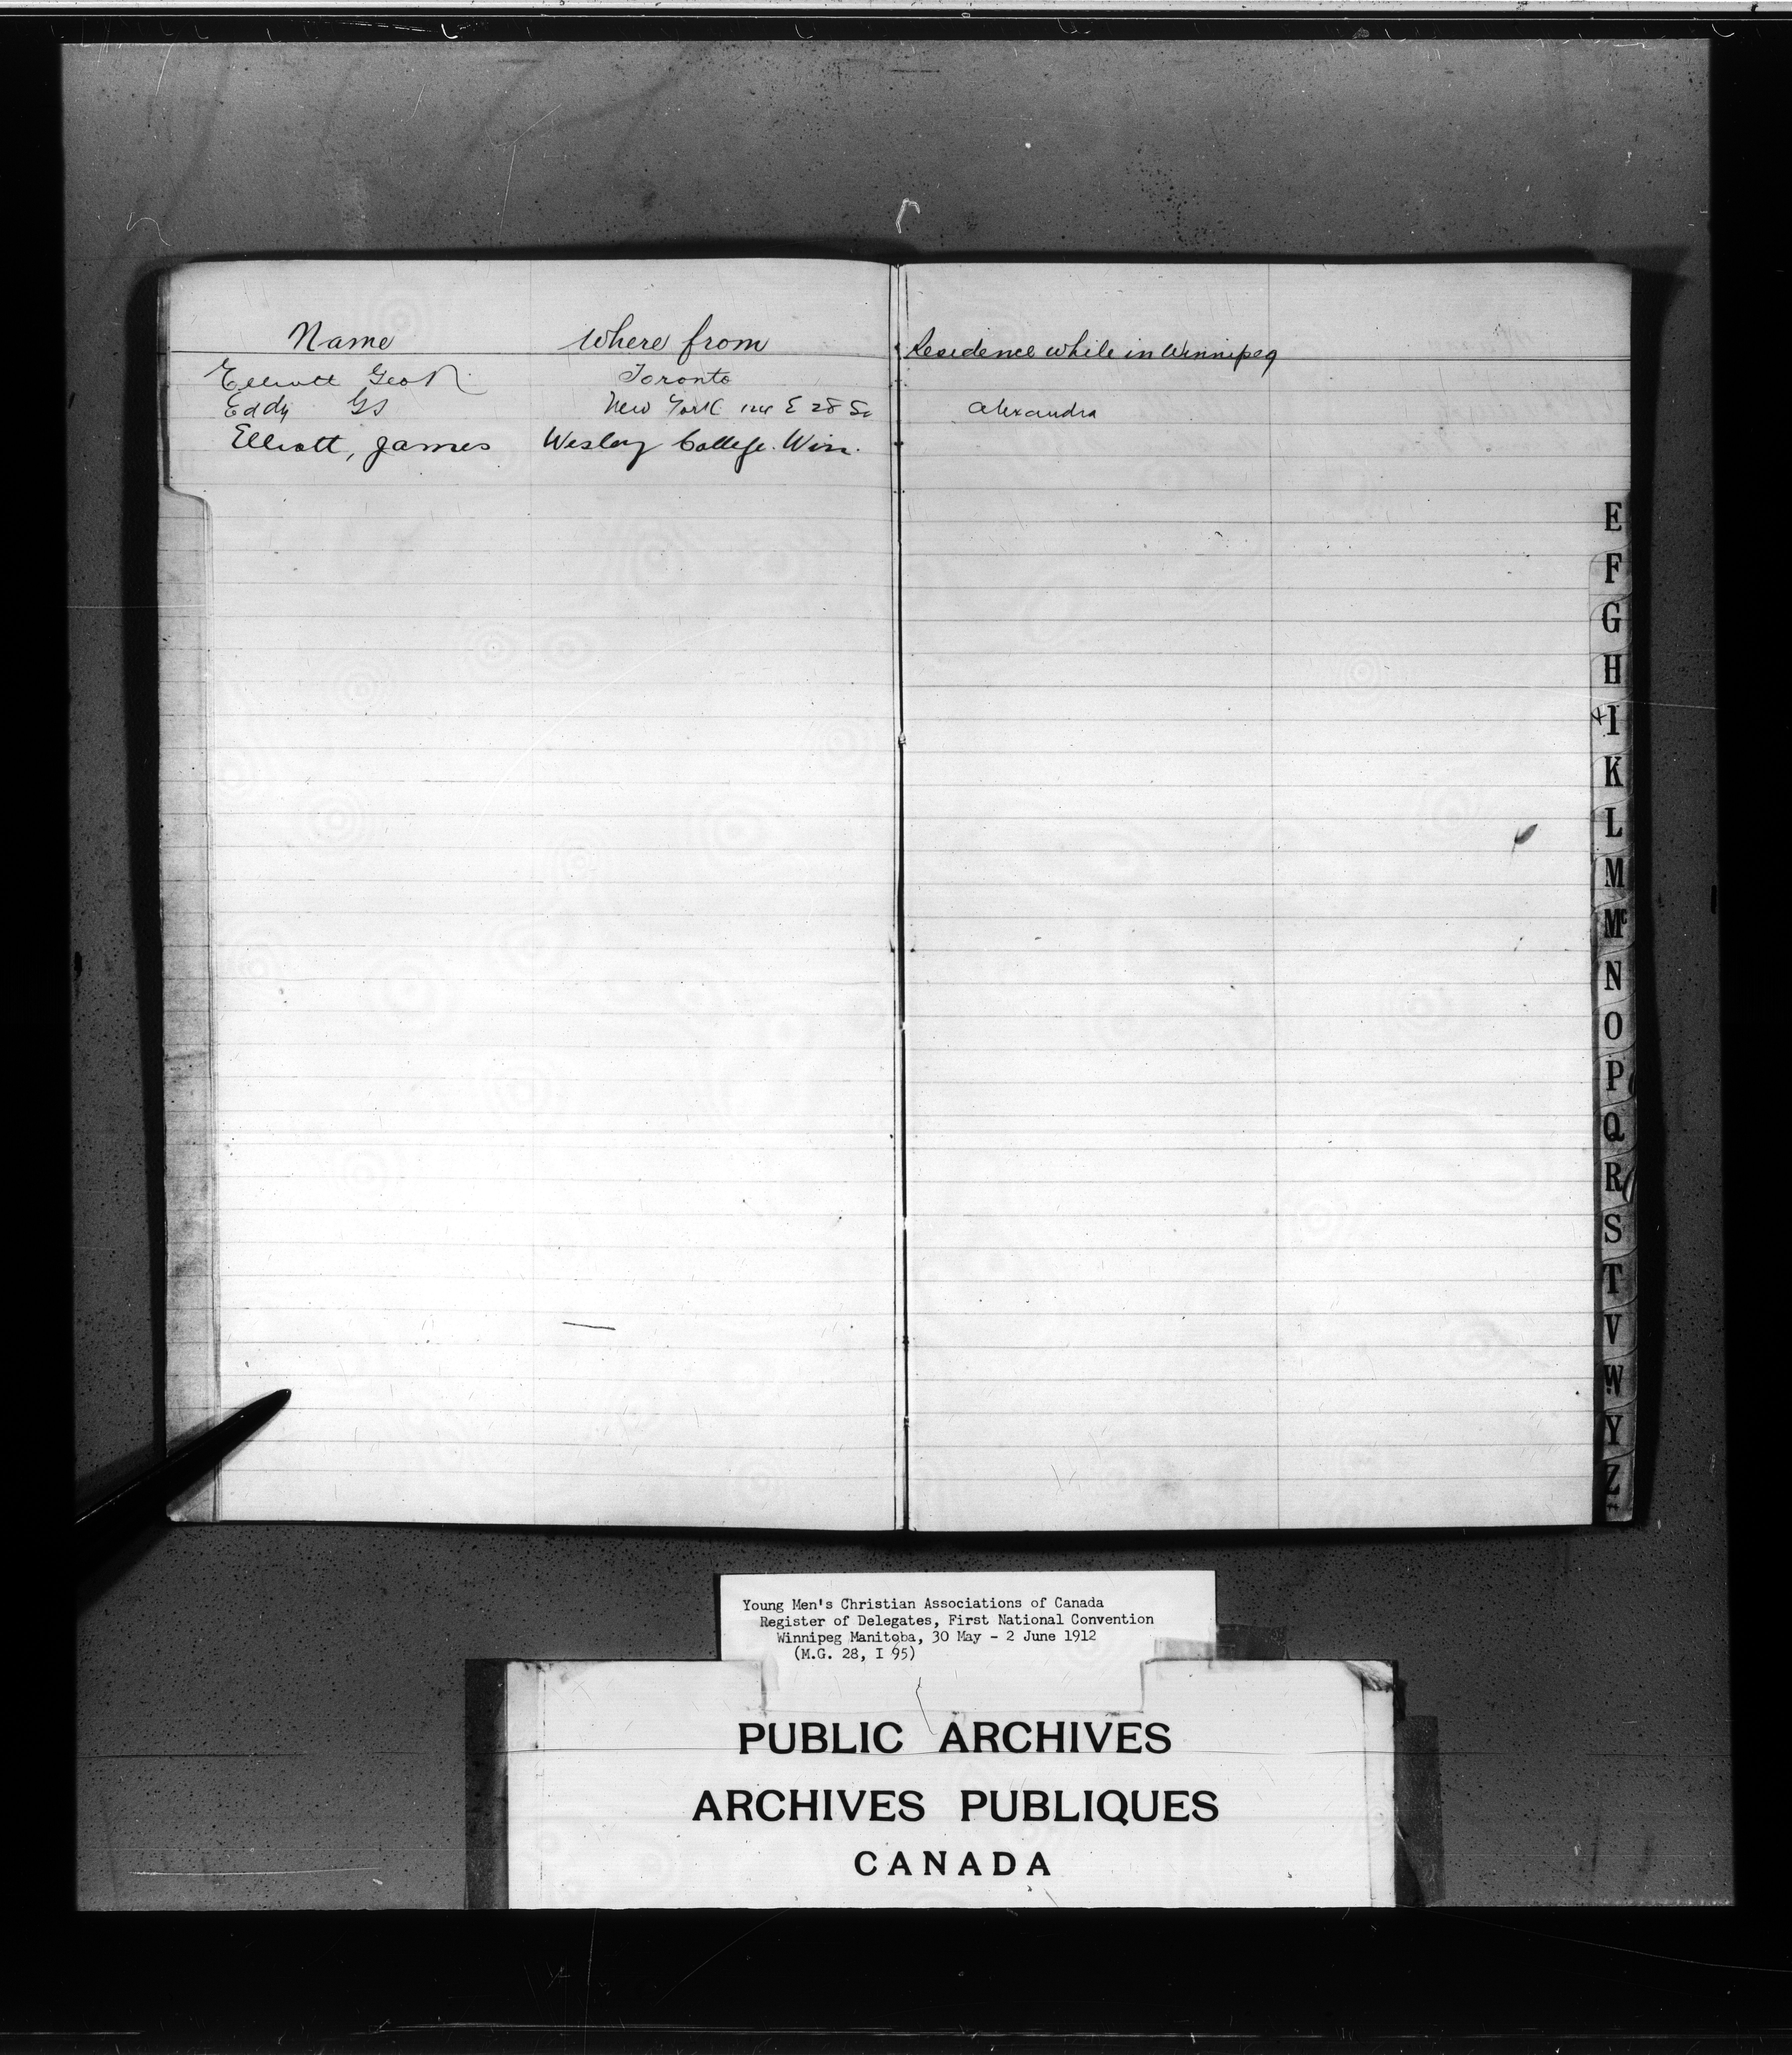 Name Where from Residence while in Winnipeg
Elliott Geo Toronto
Eddy GS New York 124 E 28 St Alexandra
Elliott, James Wesley College. Win.
E
F
G
H
I
K
L
M
Mc
N
O
P
Q
R
S
T
V
W
Y
Z
Young Men's Christian Associations of Canada
Register of Delegates, First National Convention
Winnipeg Manitoba, 30 May - 2 June 1912
(M.G. 28, I 95)
PUBLIC ARCHIVES
ARCHIVES PUBLIQUES
CANADA